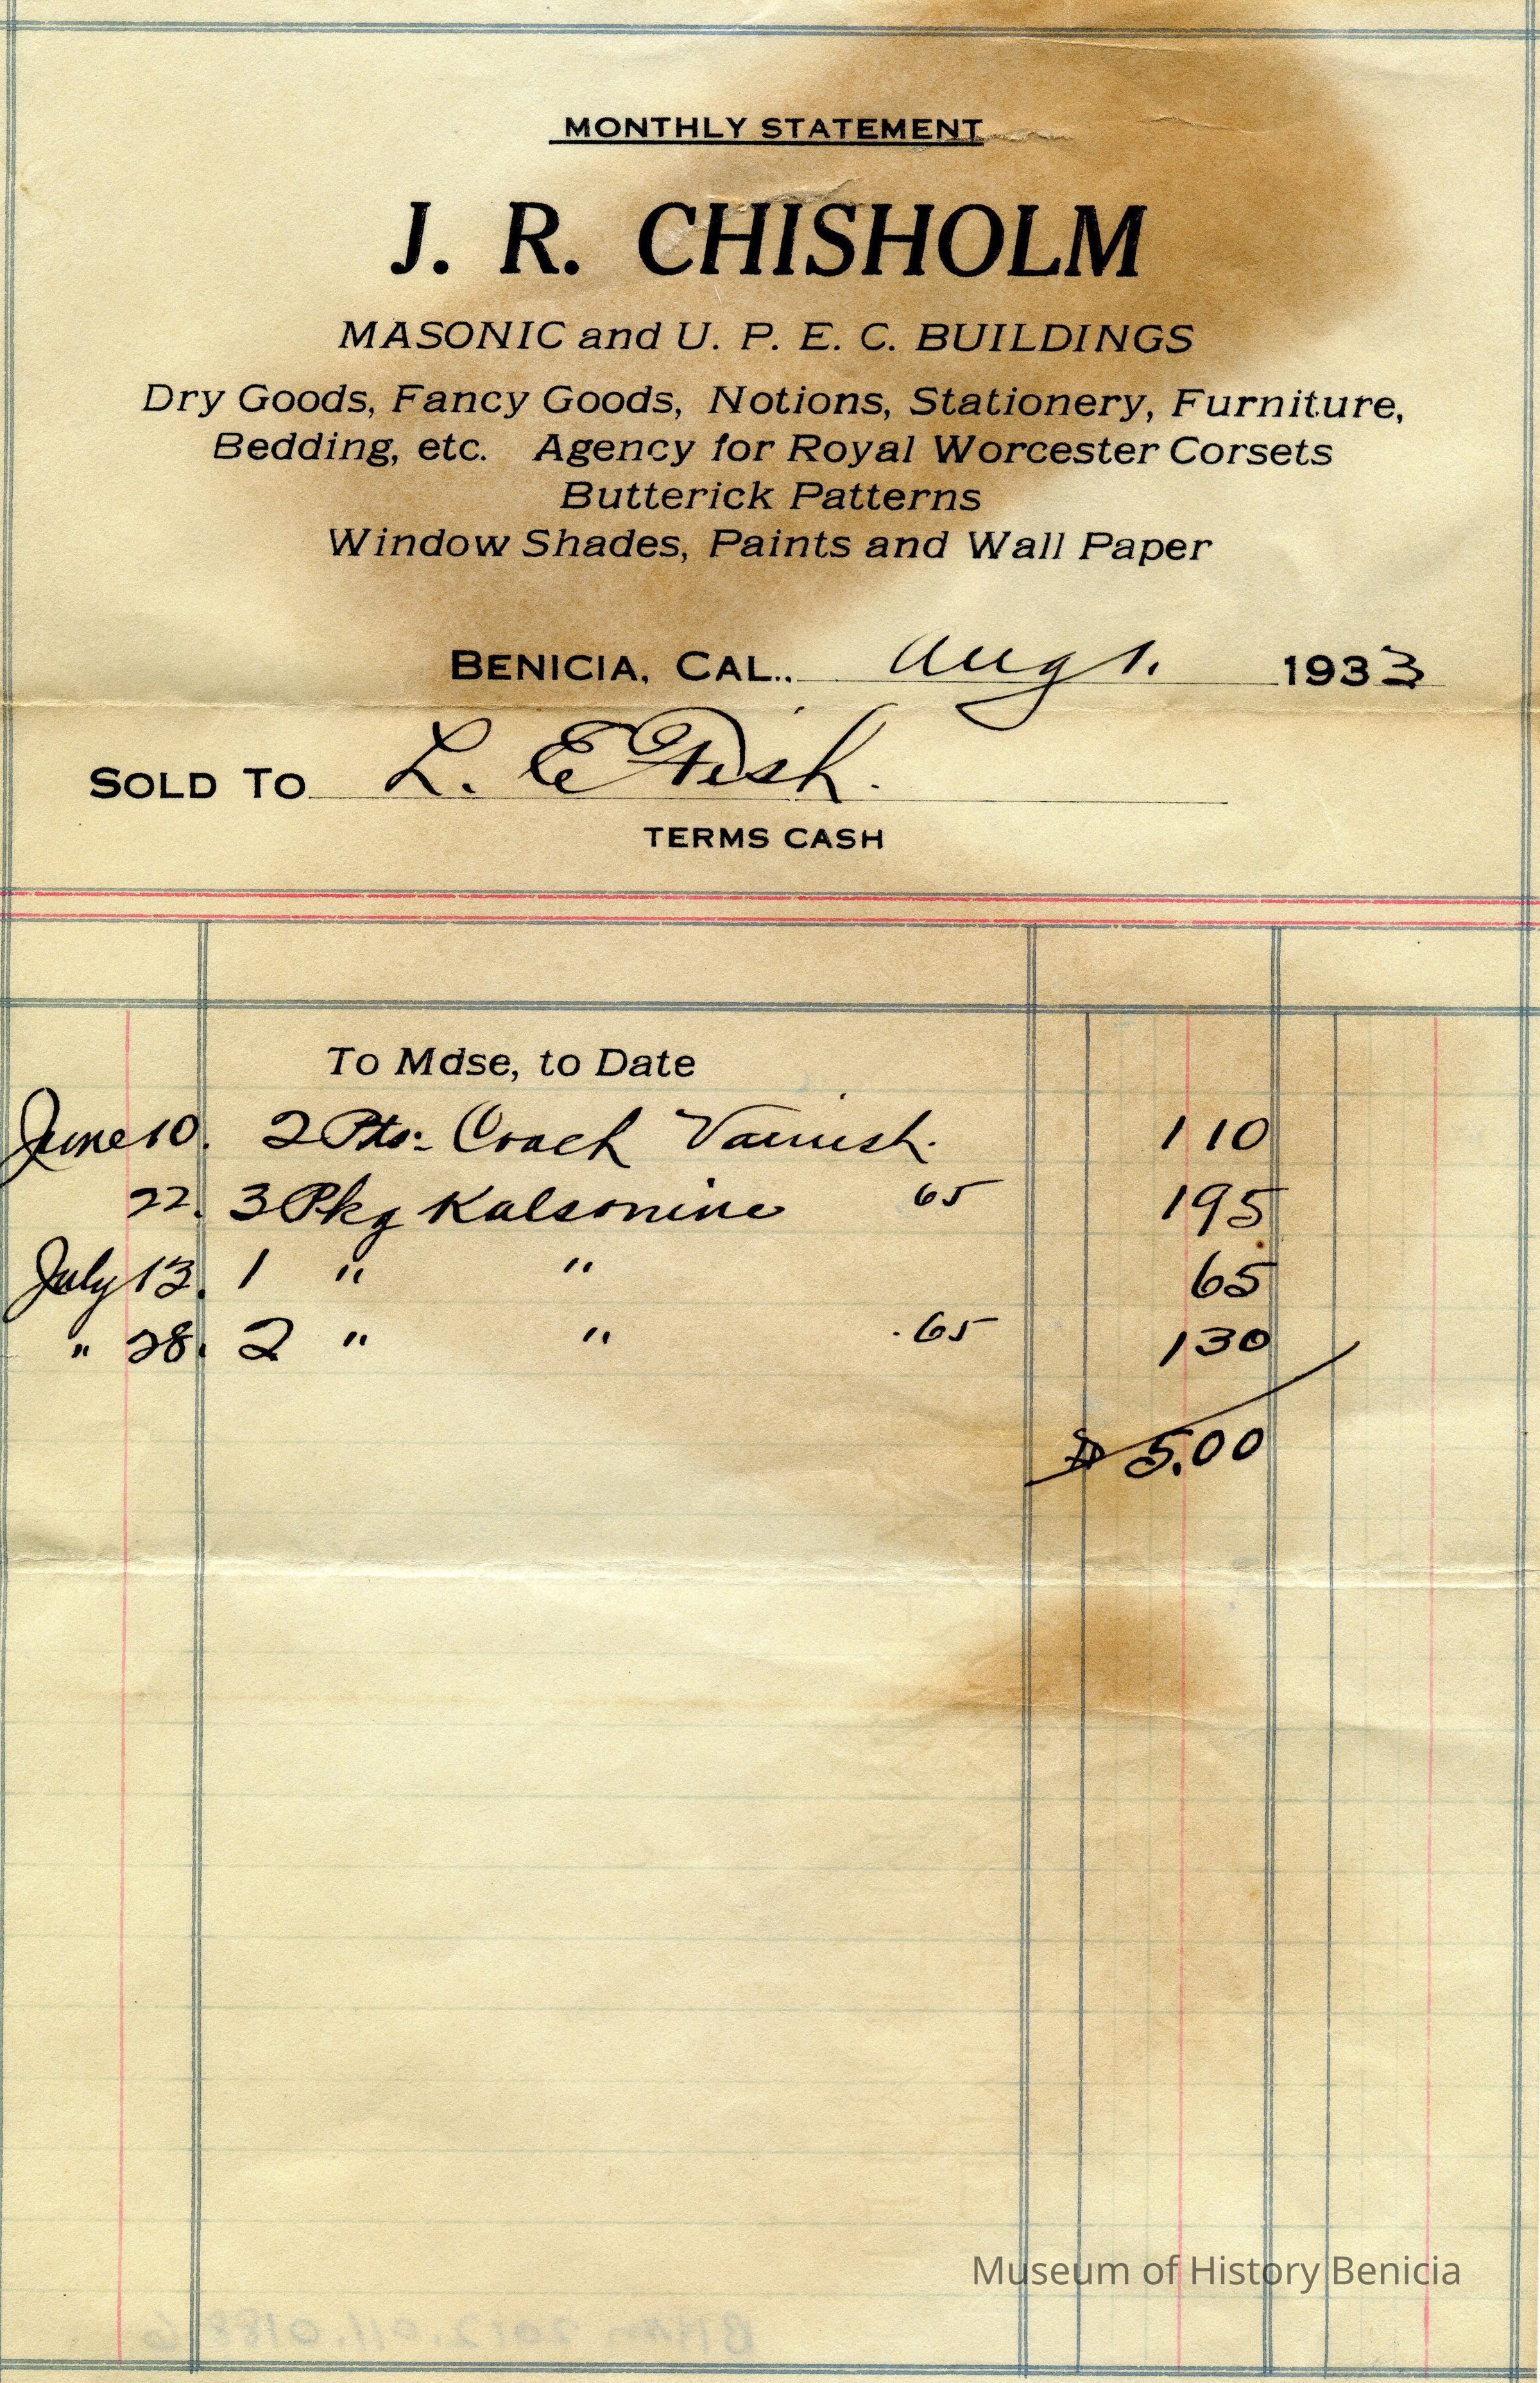 MONTHLY STATEMENT
J. R. CHISHOLM
MASONIC and U. P. E. C. BUILDINGS
Dry Goods, Fancy Goods, Notions, Stationery, Furniture,
Bedding, etc. Agency for Royal Worcester Corsets
Butterick Patterns
Window Shades, Paints and Wall Paper
BENICIA, CAL., Aug 1. 1933
SOLD TO L. E Fish.
TERMS CASH
To Mdse, to Date
June 10. 2 Pts. Coach Varnish. 1 10
22. 3 Pkg Kalsomine 65 195
July 13. 1 " " 65
" 28. 2 " " .65 130
$ 5.00
Museum of History Benicia
BHM 2012.011.01886